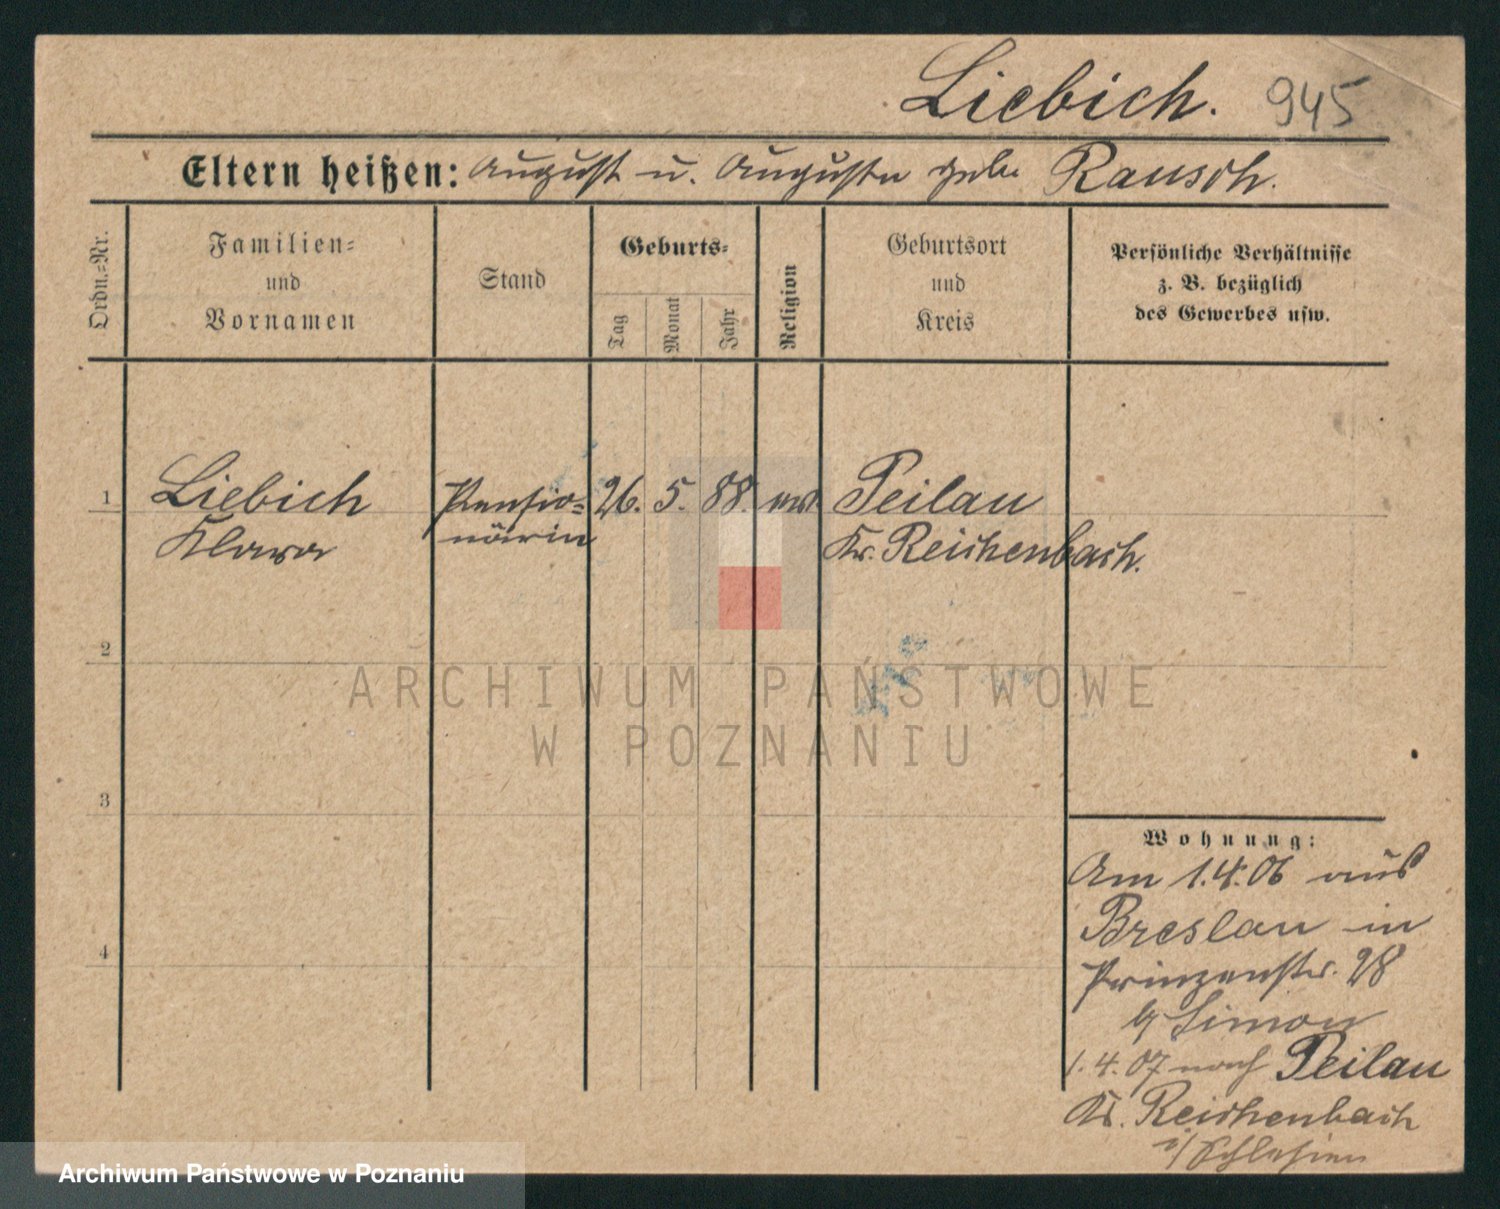 Liebich. 945
Eltern heißen: August u. Auguste geb. Rausch.
Ordn.=Nr.
Familien=
und
Vornamen
Stand
Geburts=
Tag
Monat
Jahr
Religion
Geburtsort
und
Kreis
Persönliche Verhältnisse
z. B. bezüglich
des Gewerbes usw.
1 Liebich Pensio= 26. 5. 88. ev. Peilau
Klara närin Kr. Reichenbach.
2
3
4
Wohnung:
Am 1.4.06 aus
Breslau in
Prinzenstr. 28
b/ Simon
1.4.07 nach Peilau
Kr. Reichenbach
i/Schlesien
ARCHIWUM PAŃSTWOWE
W POZNANIU
Archiwum Państwowe w Poznaniu